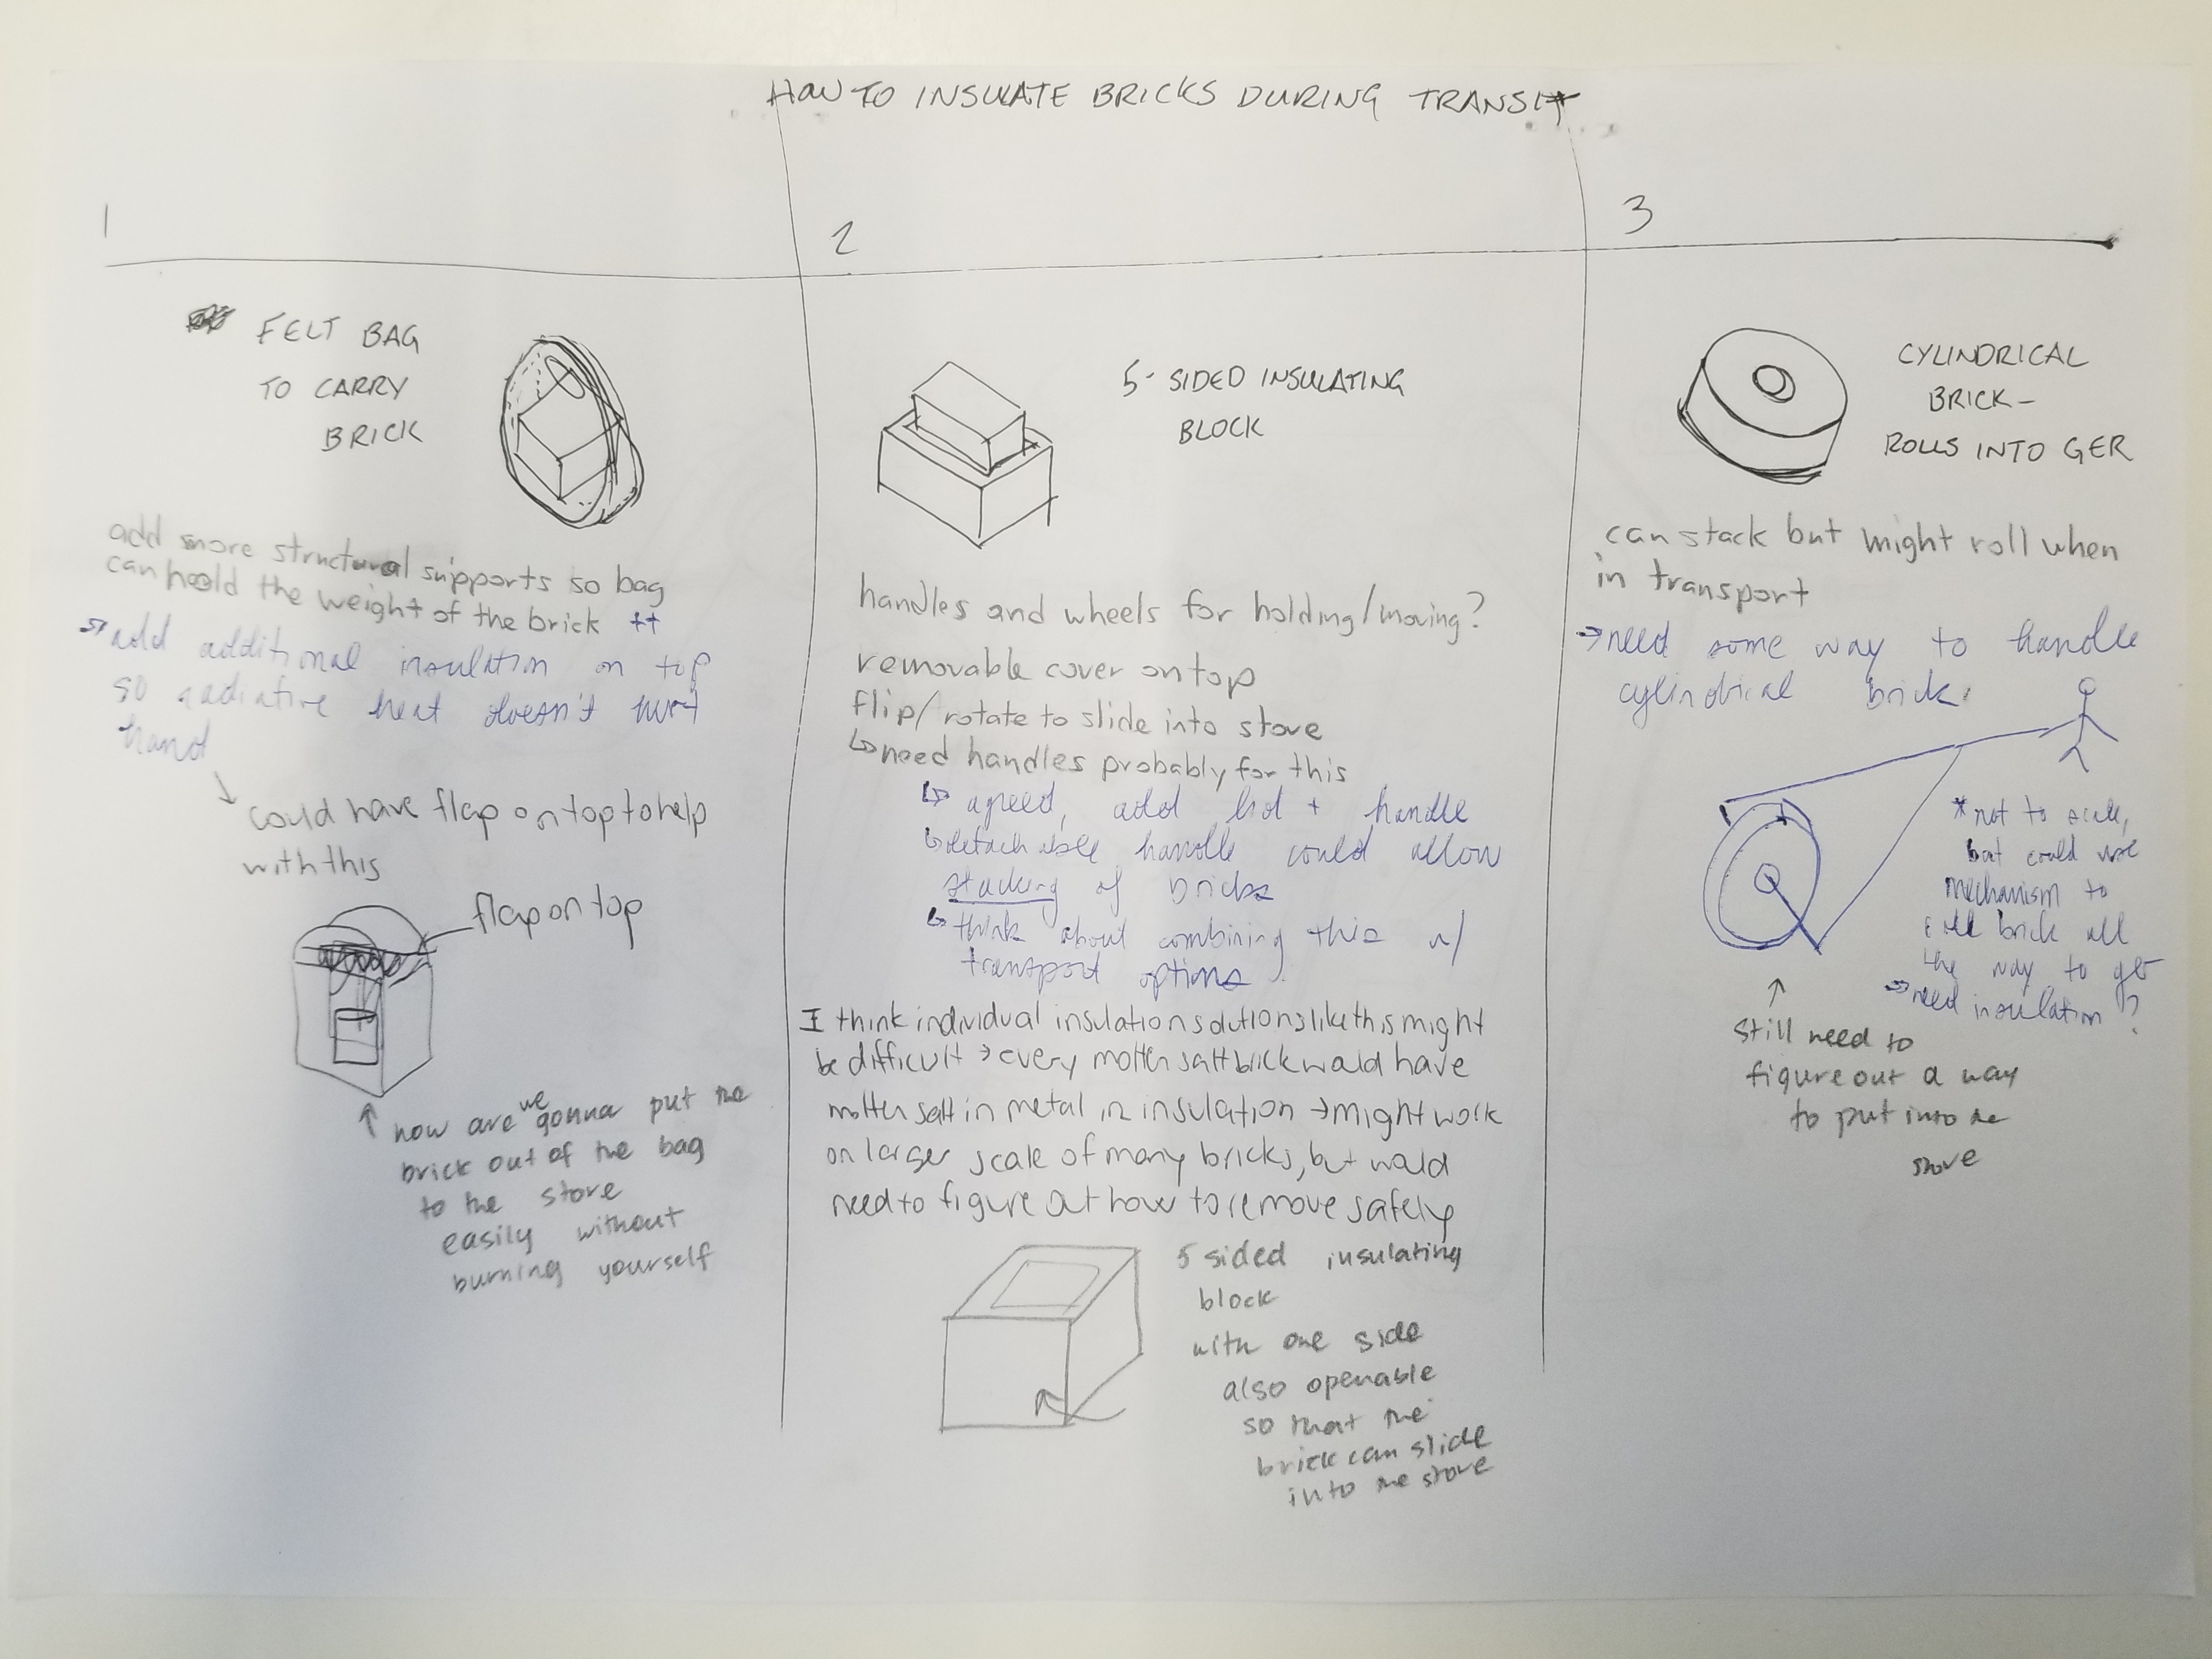 HOW TO INSULATE BRICKS DURING TRANSIT
1
FELT BAG
TO CARRY
BRICK
add more structural supports so bag
can hold the weight of the brick ++
→ add additional insulation on top
so radiative heat doesn't hurt
hand
could have flap on top to help
with this
flap on top
how are we gonna put the
brick out of the bag
to the stove
easily without
burning yourself
2
5-SIDED INSULATING
BLOCK
handles and wheels for holding/moving?
removable cover on top
flip/rotate to slide into stove
↳ need handles probably for this
↳ agreed, add lid + handle
↳ detachable handle could allow
stacking of bricks
↳ think about combining this w/
transport options
I think individual insulation solutions like this might
be difficult → every molten salt brick would have
molten salt in metal in insulation → might work
on larger scale of many bricks, but would
need to figure out how to remove safely
5 sided insulating
block
with one side
also openable
so that the
brick can slide
into the stove
3
CYLINDRICAL
BRICK -
ROLLS INTO GER
can stack but might roll when
in transport
→ need some way to handle
cylindrical brick
*not to scale,
but could use
mechanism to
roll brick all
the way to ger
→ need insulation?
still need to
figure out a way
to put into the
stove